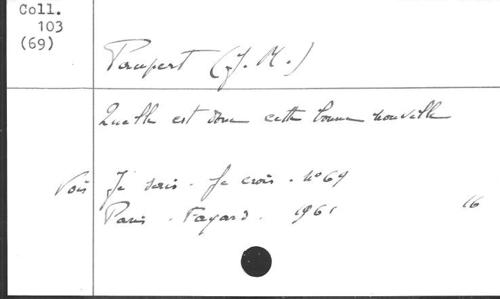 Coll.
103
(69)
Paupert (J. M.)
Quelle est donc cette bonne nouvelle
Voir Je sais. Je crois. nº 69
Paris. Fayard. 1961 16